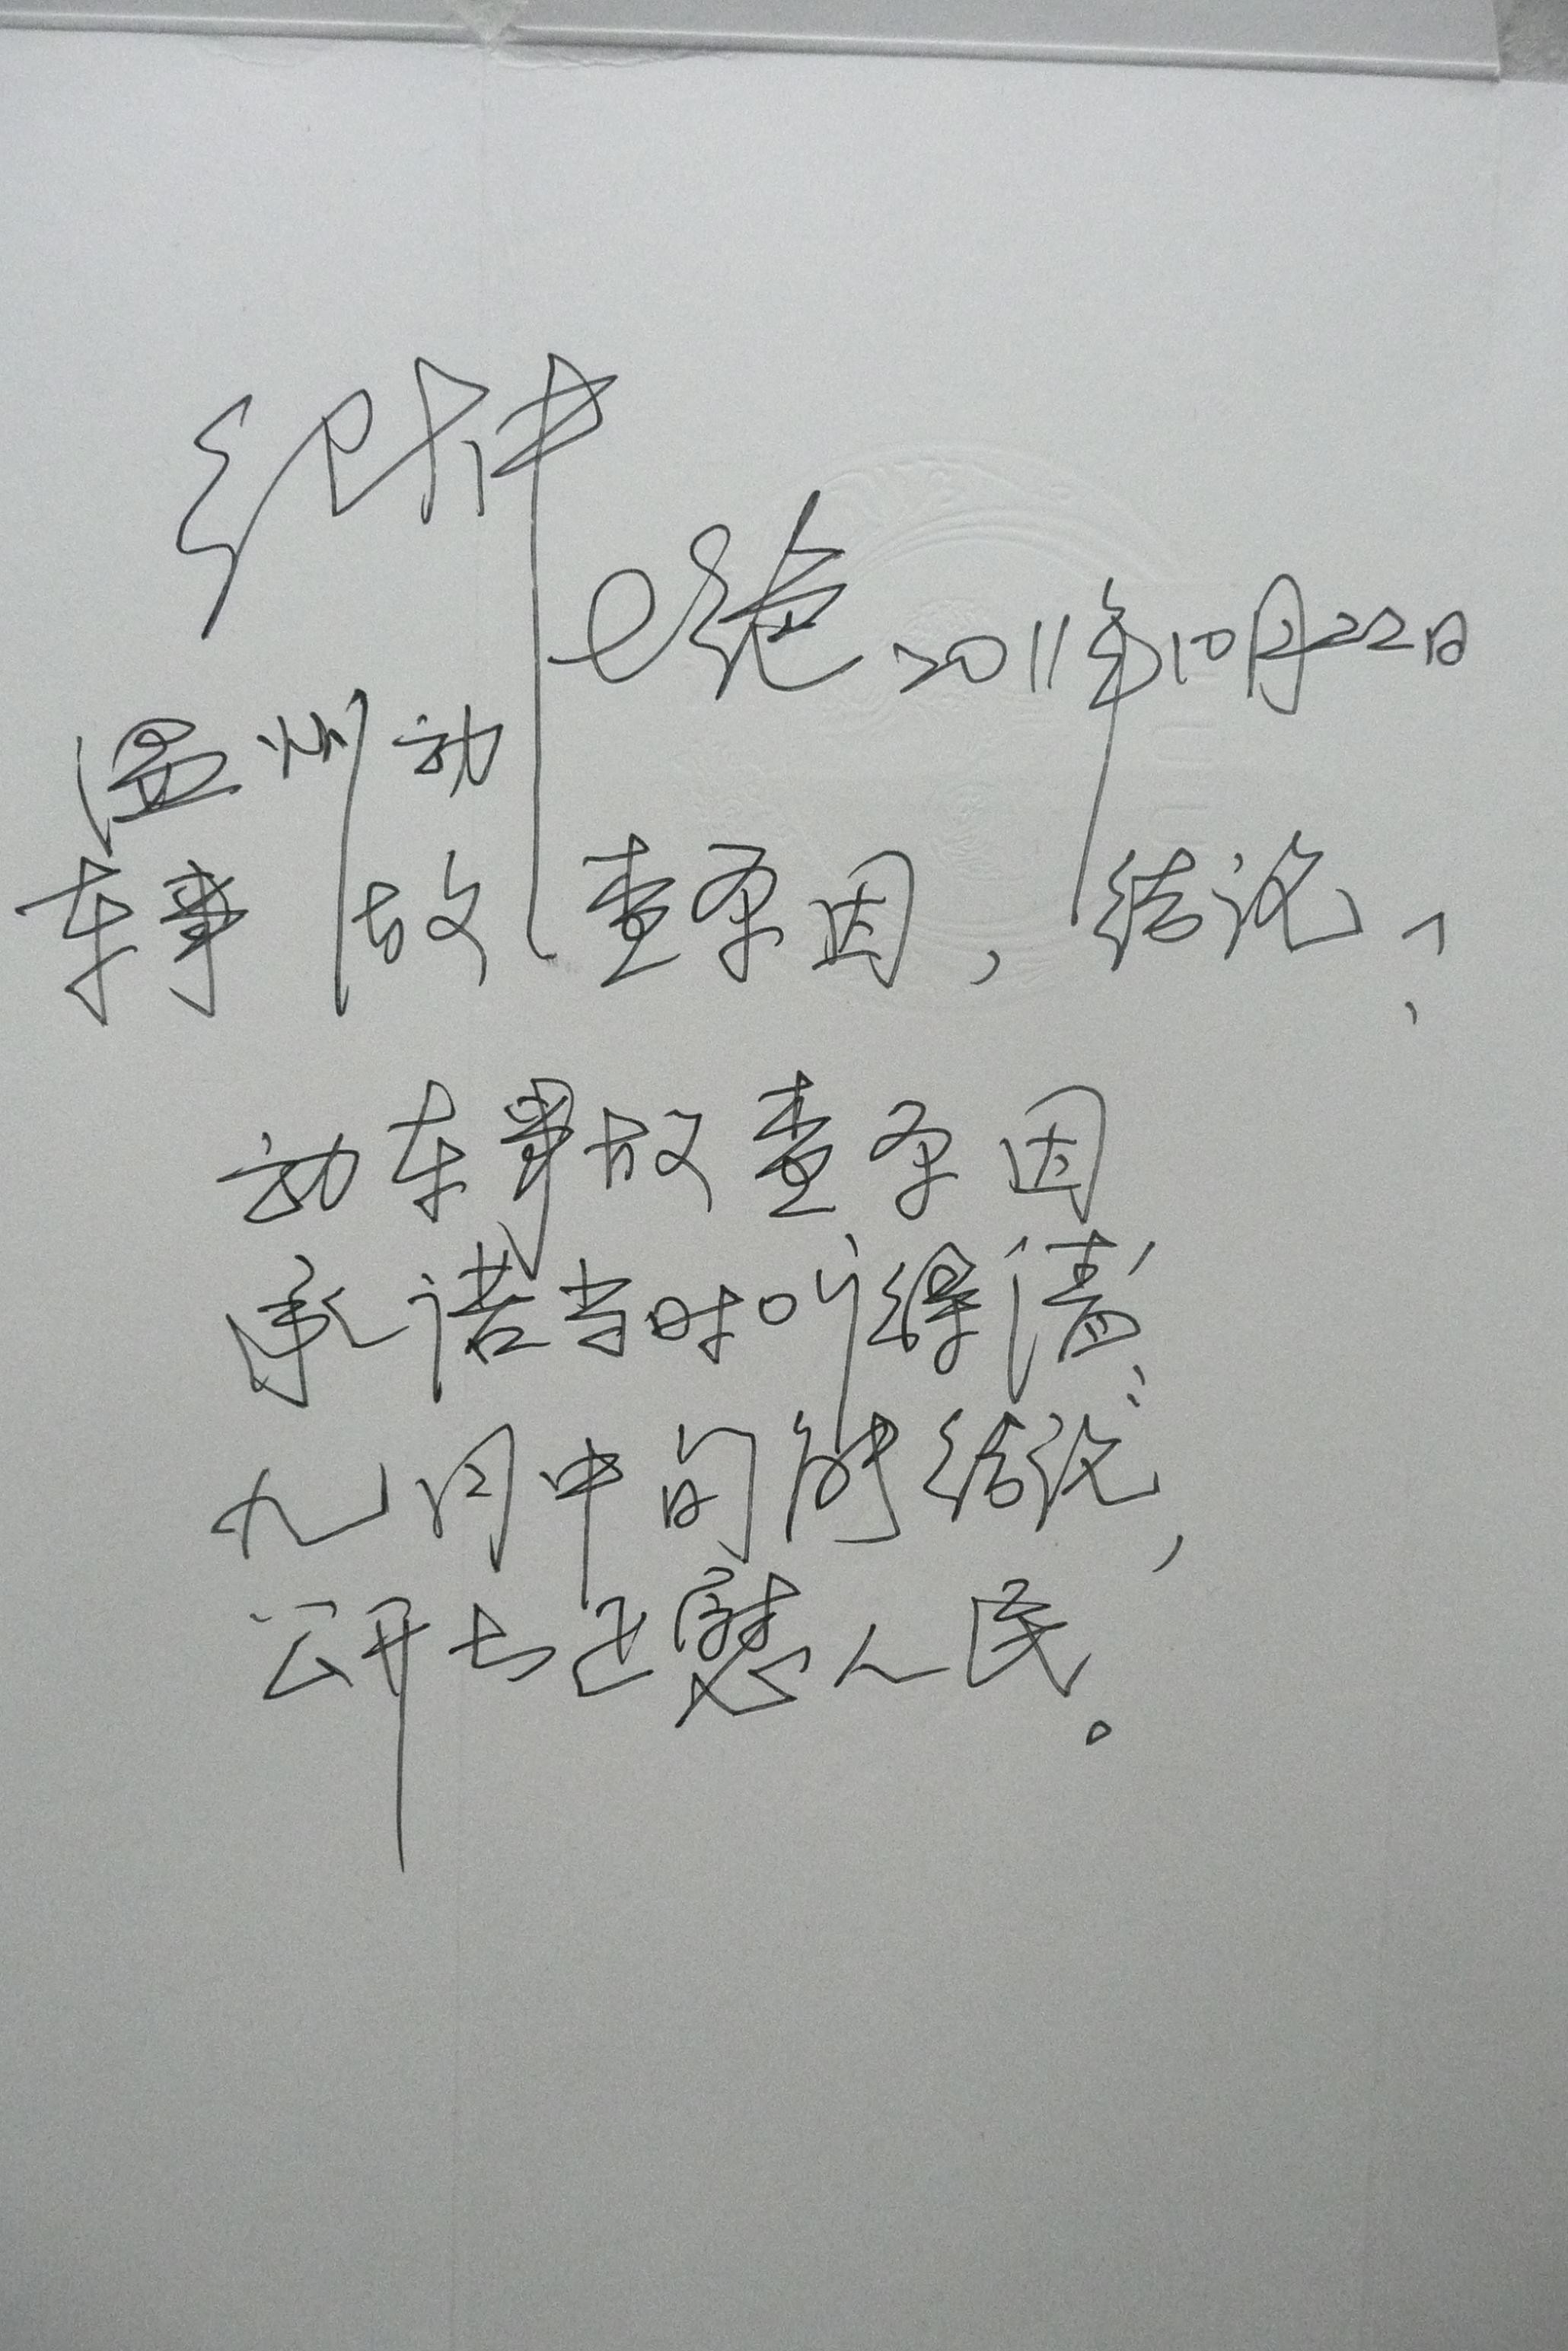 七绝 2011年10月22日
温州动
车事故查原因，结论？
动车事故查原因
承诺当时叫得清；
九月中旬能结论，
公开去还慰人民。